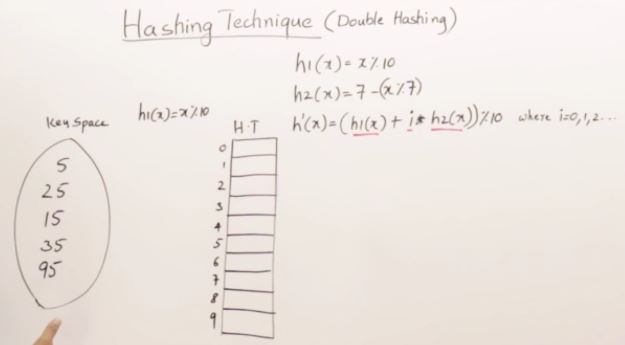 Hashing Technique (Double Hashing)
h1(x) = x%10
h2(x) = 7-(x%7)
h'(x) = (h1(x) + i* h2(x))%10 where i=0,1,2...
h1(x)=x%10
Key Space
5
25
15
35
95
H.T
0
1
2
3
4
5
6
7
8
9